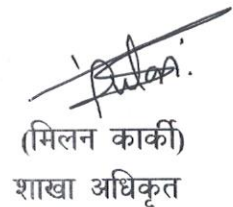 (मिलन कार्की)
शाखा अधिकृत